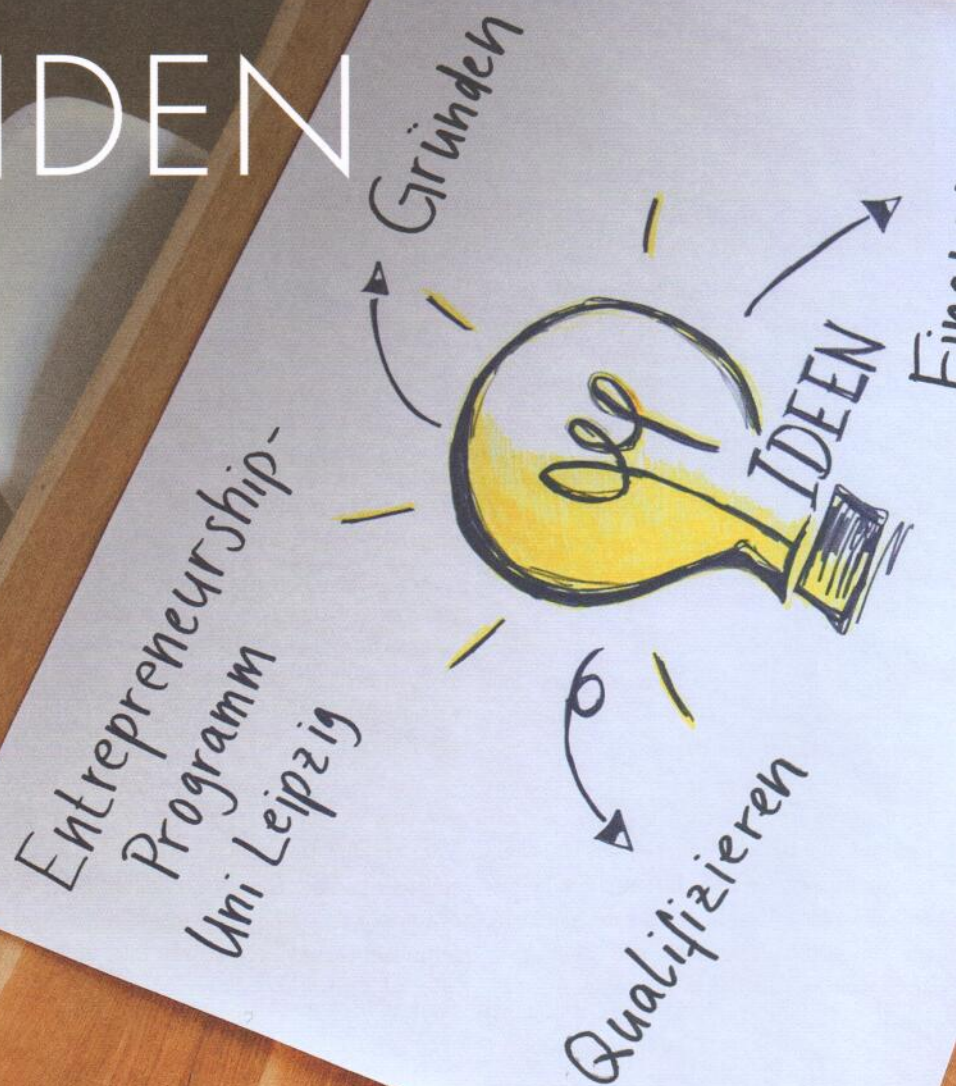 Gründen
Entrepreneurship-
Programm
Uni Leipzig
IDEEN
Qualifizieren